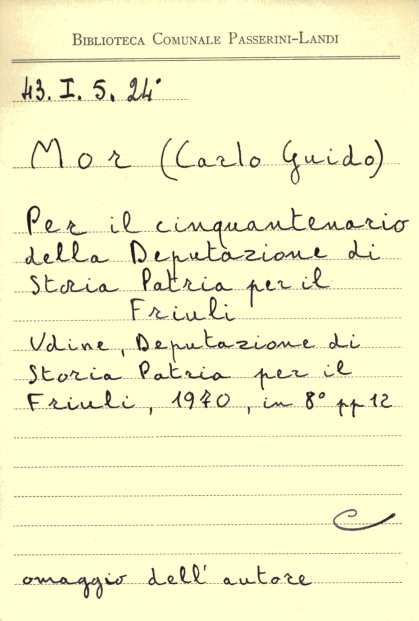 BIBLIOTECA COMUNALE PASSERINI-LANDI
43. I. 5. 24°
Mor (Carlo Guido)
Per il cinquantenario
della Deputazione di
Storia Patria per il
Friuli
Udine, Deputazione di
Storia Patria per il
Friuli, 1970, in 8° pp 12
C
omaggio dell'autore